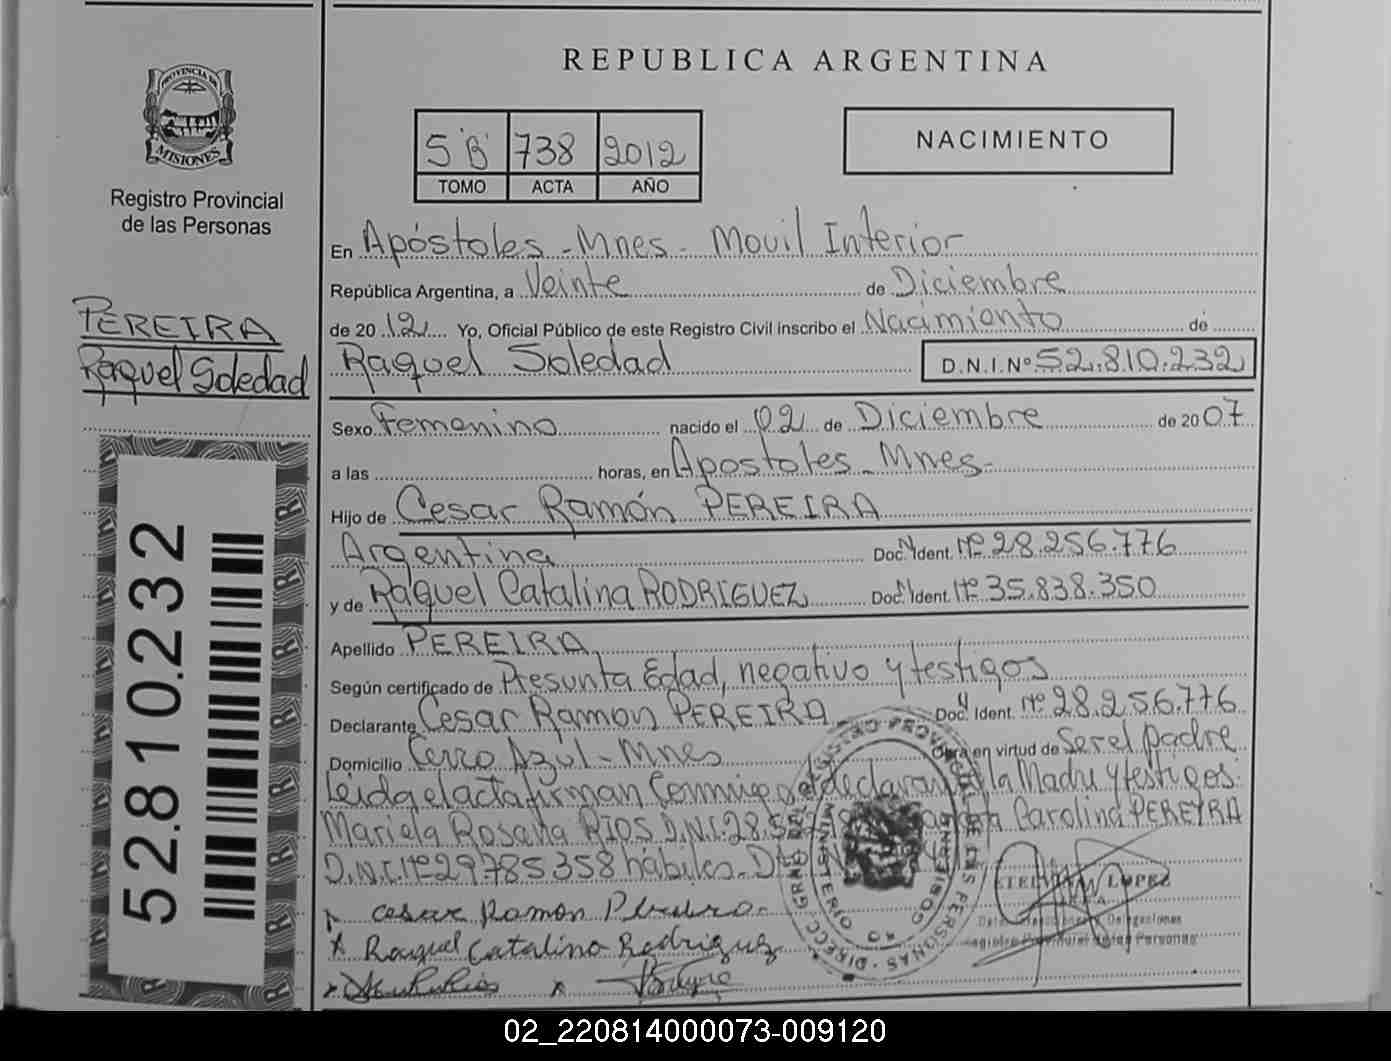 REPUBLICA ARGENTINA
PROVINCIA DE
MISIONES
Registro Provincial
de las Personas
5 "B" 738 2012
TOMO ACTA AÑO
NACIMIENTO
En Apóstoles - Mnes - Movil Interior
República Argentina, a Veinte de Diciembre
de 2012 Yo, Oficial Público de este Registro Civil inscribo el Nacimiento de
Raquel Soledad D.N.I.Nº 52.810.232
PEREIRA
Raquel Soledad
Sexo Femenino nacido el 02 de Diciembre de 2007
a las horas, en Apostoles - Mnes-
Hijo de Cesar Ramón PEREIRA
Argentina Doc. Ident. Nº 28.256.776
y de Raquel Catalina RODRIGUEZ Doc. Ident. Nº 35.838.350
Apellido PEREIRA
Según certificado de Presunta Edad, negativo y testigos
Declarante Cesar Ramon PEREIRA Doc. Ident. Nº 28.256.776
Domicilio Cerro Azul - Mnes Obra en virtud de Ser el padre
Leida el acta firman Conmigo el declarante la Madre y testigos:
Mariela Rosana RIOS D.N.I. 28.5 Carolina PEREYRA
D.N.I. Nº 29785358 hábiles.
Cesar Ramon Pereira
x Raquel Catalina Rodriguez
LOPEZ
Registro Provincial de las Personas
52.810.232
02_220814000073-009120